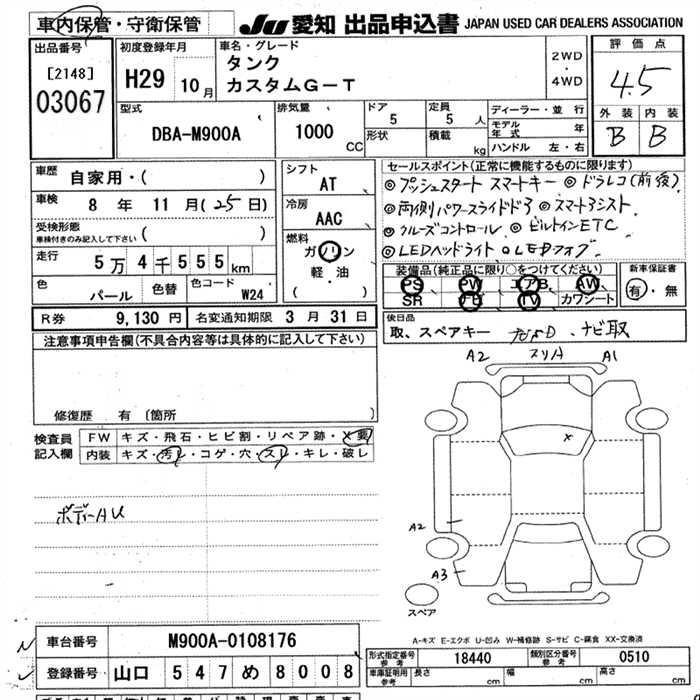 車内保管・守衛保管
JU 愛知 出品申込書 JAPAN USED CAR DEALERS ASSOCIATION
出品番号
[2148]
03067
初度登録年月
H29 10月
車名・グレード
タンク
カスタムG-T
2WD
・
4WD
評価点
4.5
外装 内装
B B
型式
DBA-M900A
排気量
1000 CC
ドア
5
形状
定員
5 人
積載
kg
ディーラー・並行
モデル年式 年
ハンドル 左・右
車歴
自家用・( )
車検
8 年 11 月 (25日)
受検形態
車検付きのみ記入して下さい ( )
走行
5万4千555km
色
パール
色替
色コード
W24
シフト
AT
冷房
AAC
燃料
ガソリン
軽・油
( )
セールスポイント(正常に機能するものに限ります)
◎プッシュスタート スマートキー ◎ドラレコ(前後)
◎両側パワースライドドア ◎スマアシスト
◎クルーズコントロール ◎ビルトインETC
◎LEDヘッドライト ○LEDフォグ
装備品(純正品に限り○をつけてください)
PS PW エアB. AW
SR TV カワシート
新車保証書
有・無
R券 9,130円 名変通知期限 3月31日
後日品
取、スペアキー ナビ取
注意事項申告欄(不具合内容等は具体的に記入して下さい)
修復歴 有 〔箇所 〕
検査員
記入欄
FW キズ・飛石・ヒビ割・リペア跡・X要
内装 キズ・汚レ・コゲ・穴・スレ・キレ・破レ
ボディーAU
A2 スリA A1
X
A2
A3
スペア
A-キズ E-エクボ U-凹み W-補修跡 S-サビ C-腐食 XX-交換済
車台番号 M900A-0108176
登録番号 山口 547 め 8008
形式指定番号
参考
18440
類別区分番号
参考
0510
車庫証明用
参考
長さ cm 幅 cm 高さ cm